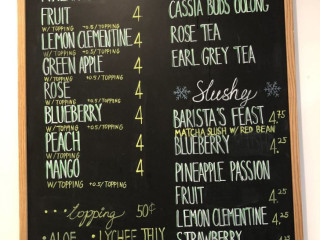 FRUIT 4
W/TOPPING +0.5/TOPPING
LEMON CLEMENTINE 4
W/TOPPING +0.5/TOPPING
GREEN APPLE 4
W/TOPPING +0.5/TOPPING
ROSE 4
W/TOPPING +0.5/TOPPING
BLUEBERRY 4
W/TOPPING +0.5/TOPPING
PEACH 4
W/TOPPING +0.5/TOPPING
MANGO 4
W/TOPPING +0.5/TOPPING
... topping 50¢
• ALOE • LYCHEE JELLY
CASSIA BUDS OOLONG
ROSE TEA
EARL GREY TEA
Slushy
BARISTA'S FEAST 4.75
MATCHA SLUSH W/ RED BEAN
BLUEBERRY 4.25
PINEAPPLE PASSION
FRUIT 4.25
LEMON CLEMENTINE 4.25
STRAWBERRY 4.25